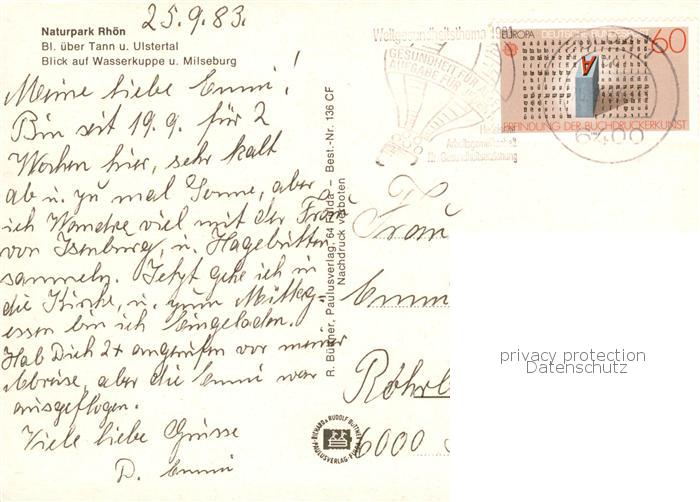 25.9.83.
Naturpark Rhön
Bl. über Tann u. Ulstertal
Blick auf Wasserkuppe u. Milseburg
Meine liebe Emmi!
Bin seit 19.9. für 2
Wochen hier, sehr kalt
ab u. zu mal Sonne, aber
ich Wandre viel mit der Frau
von Isenburg, u. Hagebutten
sammeln. Jetzt gehe ich in
die Kirche, u. zum Mittag-
essen bin ich eingeladen.
Hab Dich 2x angerufen vor meiner
Abreise, aber die Emmi war
ausgeflogen.
Viele liebe Grüsse
D. Emmi
R. Büttner, Paulusverlag, 64 Fulda – Best.-Nr. 136 CF
Nachdruck verboten
Weltgesundheitsthema 1981
GESUNDHEIT FÜR ALLE
AUFGABE FÜR
EUROPA DEUTSCHE BUNDESPOST
60
A
ERFINDUNG DER BUCHDRUCKERKUNST
6400
Frau
Emmi
6000
RICHARD & RUDOLF BÜTTNER
PAULUSVERLAG FULDA
privacy protection
Datenschutz